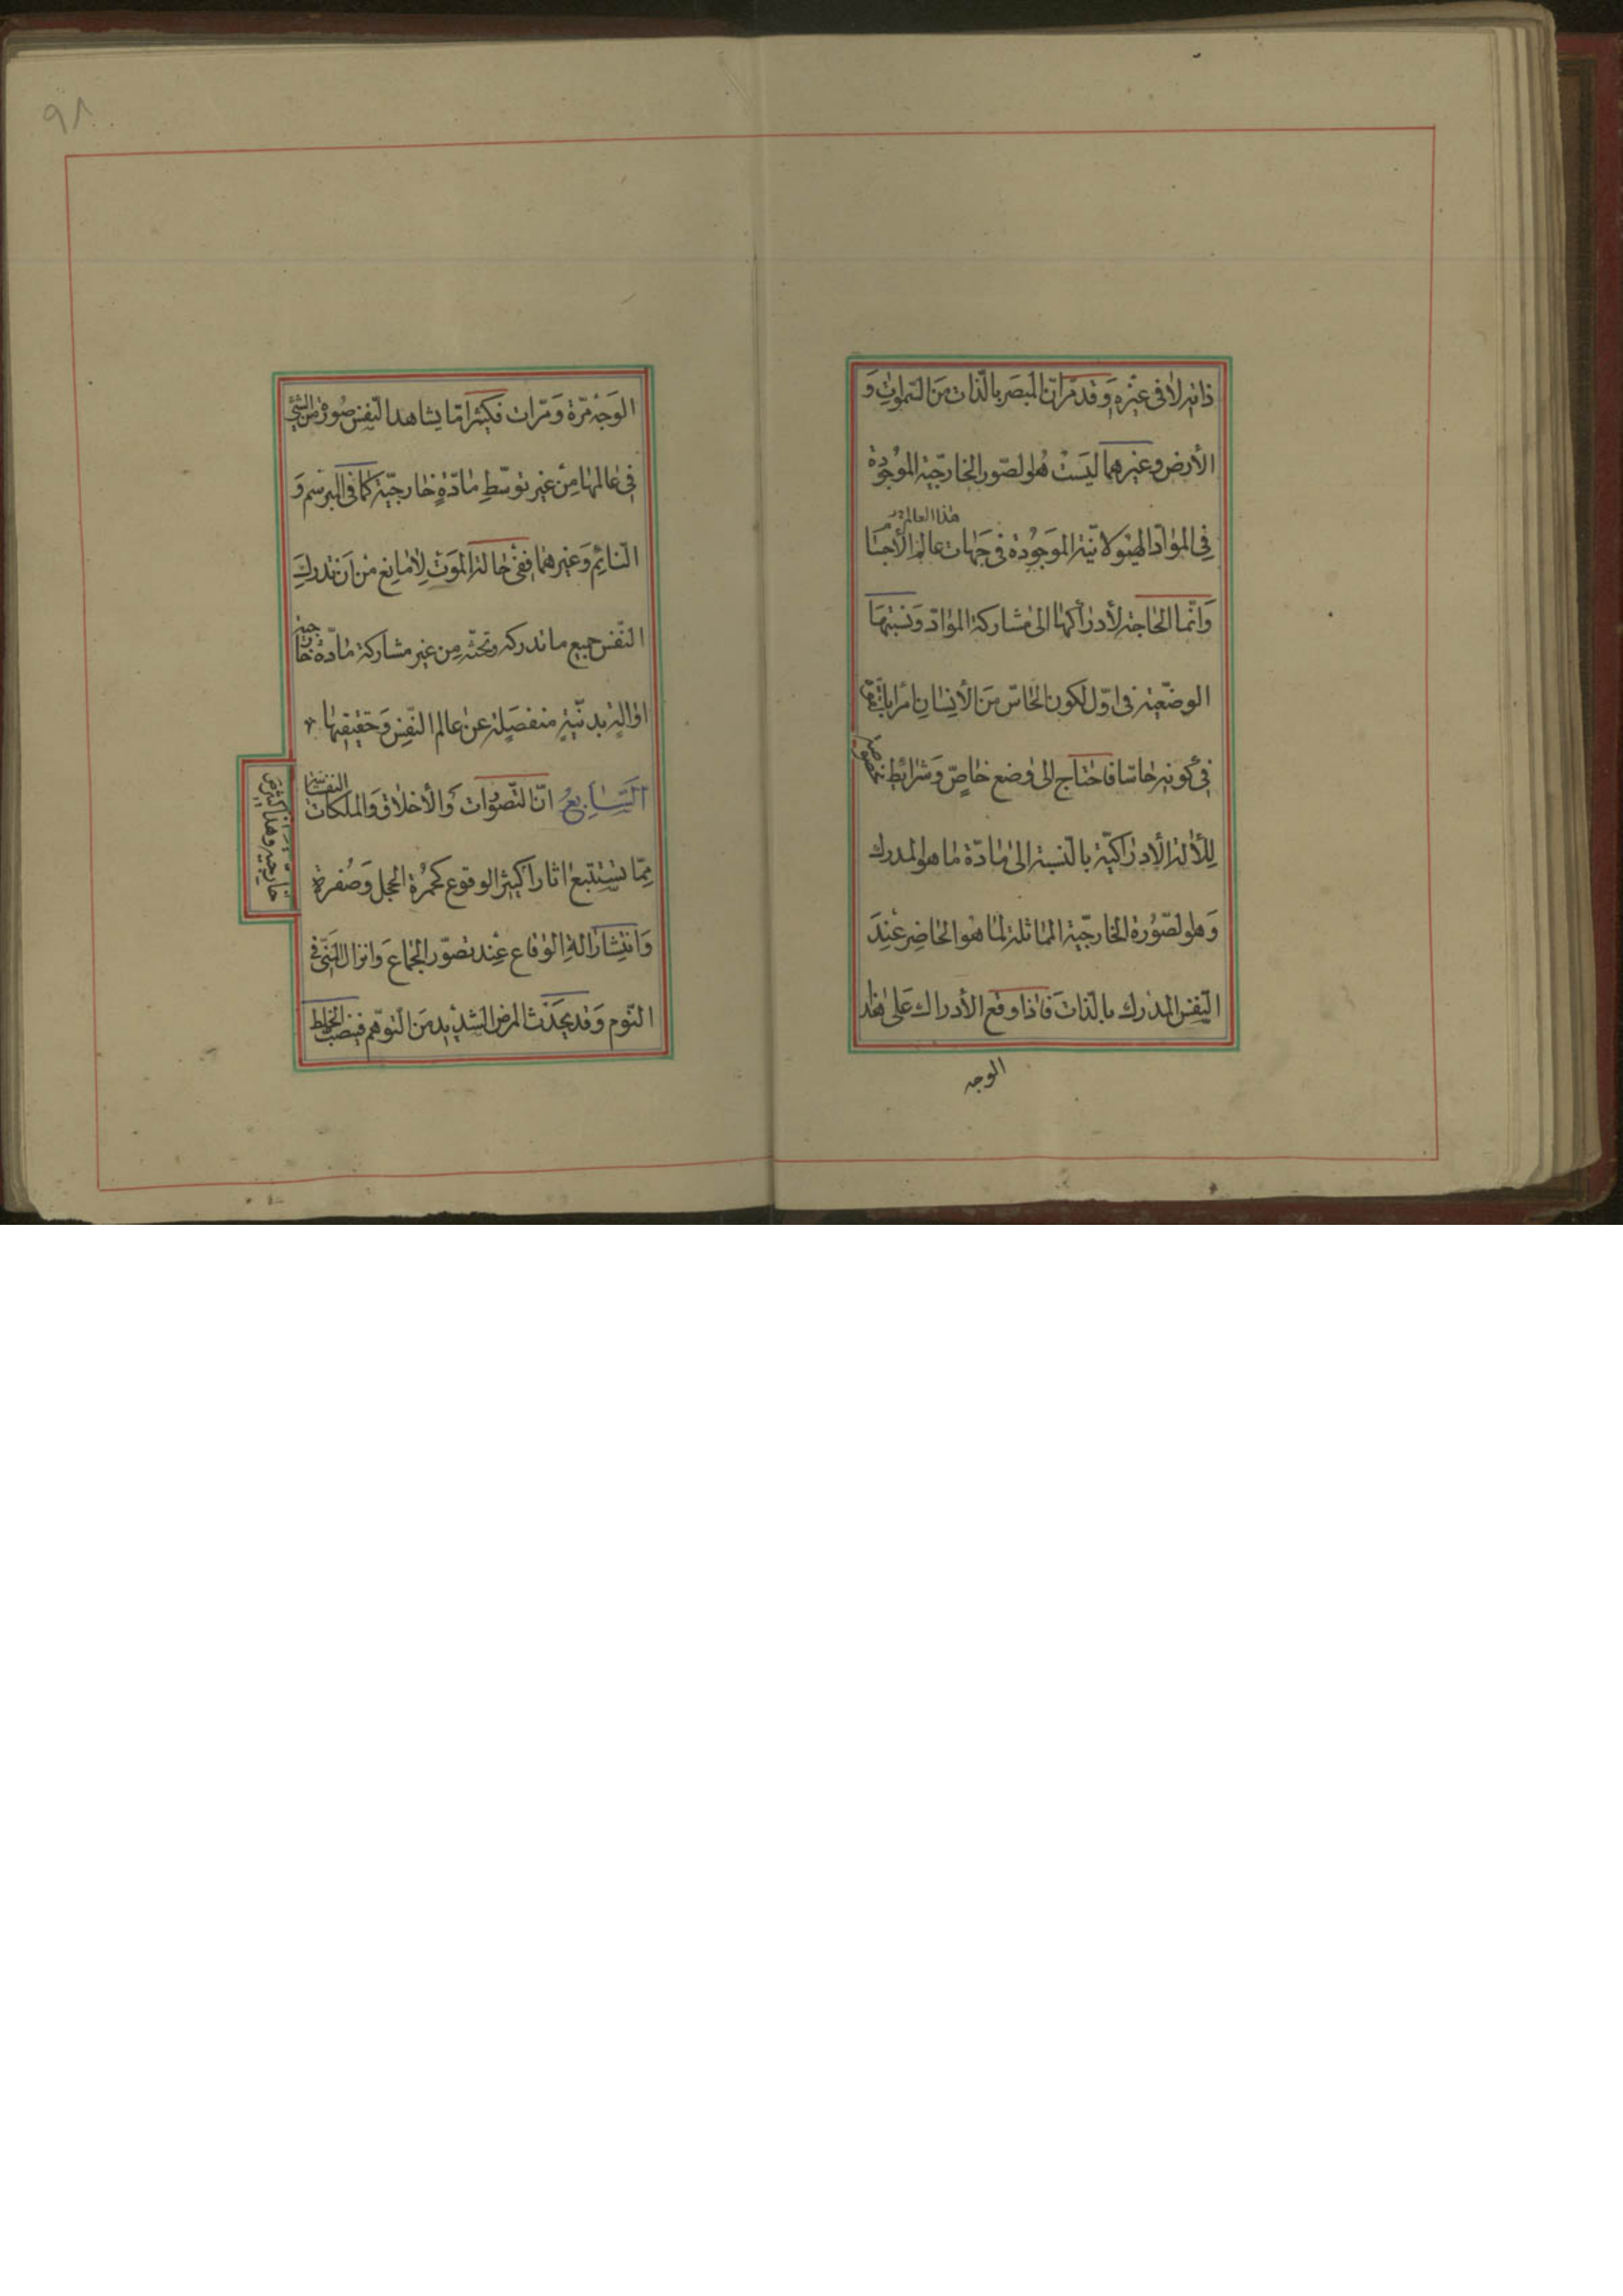 ذاته لا فى غيره وَقد مرّ انّ المبصَر بالّذات منَ السّموٰتِ وَ
الأرض وغيرهما ليَسَتْ هُو الصّور الخارجّية الموُجُودة
فِى الموٰادّ الهيٰولانيّة الموَجُودة فى جَهات عالم الأجسٰا
هذا العالم
وَانّما الحٰاجة لأدرٰاكها الى مُشاركة الموٰادّ وَنسَبتهَا
الوضعّية فى اوّل لكون الحٰاسّ منَ الأنسٰانِ امرًا بالقوّة
فِى كونه حٰاسّا فاحتاج الى وضع خاصٍّ وَشرائط مخصوصة
لِلألة الأدرٰاكيّة بالّنسبة الى مٰادّة مٰا هو المدرك
وَهو الصّوُرة الخارجّية المماثلة لمٰا هُو الحٰاضِر عنِدَ
الّنفس المدرك بالّذات فَاذا وقع الأدراك عَلى هٰذا
الوجه
٩٨
الوَجْه مرّة وَمرّات فكثيرًا مّا يشاهد الّنفس صُورة من الشئ
فِى عٰالمها مِنْ غير توسّطِ مٰادّةٍ خٰارجيّة كَما فى المبرسم وَ
الّنائِم وَغيرهمٰا ففى حٰالة الموَت لاٰ مٰانع مْن اَن تدرك
الّنفس جميع ما تدركه وتحسّه مِن غير مشاركة مٰادّة خٰارجية
اوْ الةٍ بدنيّةٍ منفصَلة عن عالم النّفس وَحقيقتهٰا
السّٰابِعُ انّ التّصوّرات وَالأخلاٰق وَالملكات النفسٰانية
مِمّا تستتبع اثارًا
خارجيه وهذا كثير
كثير الوقوع كحمُرة الخجل وَصُفرة
وَانتِشار الة الوٰقاع عِند تصوّر الجمٰاع وَانزال المَنىّ فى
النّوم وَقد يَحدث المرض الشديد منَ الّتوهّم فينصبّ الخلط